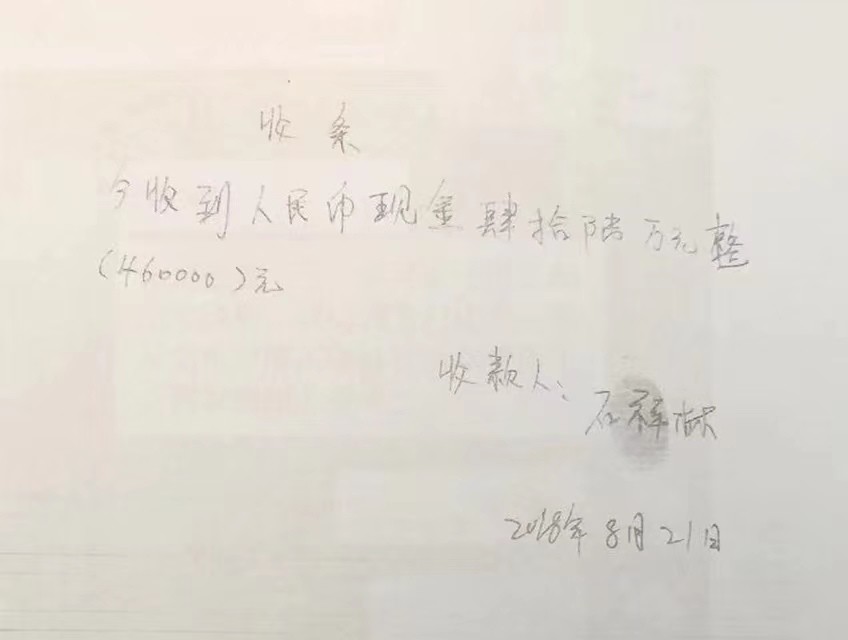 收条
今收到人民币现金肆拾陆万元整
(460000)元
收款人:石祥林
2018年8月21日